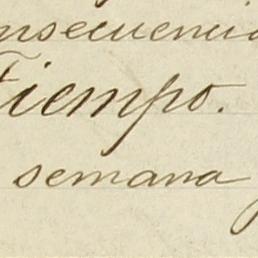 nsecuencia
Tiempo.
semana